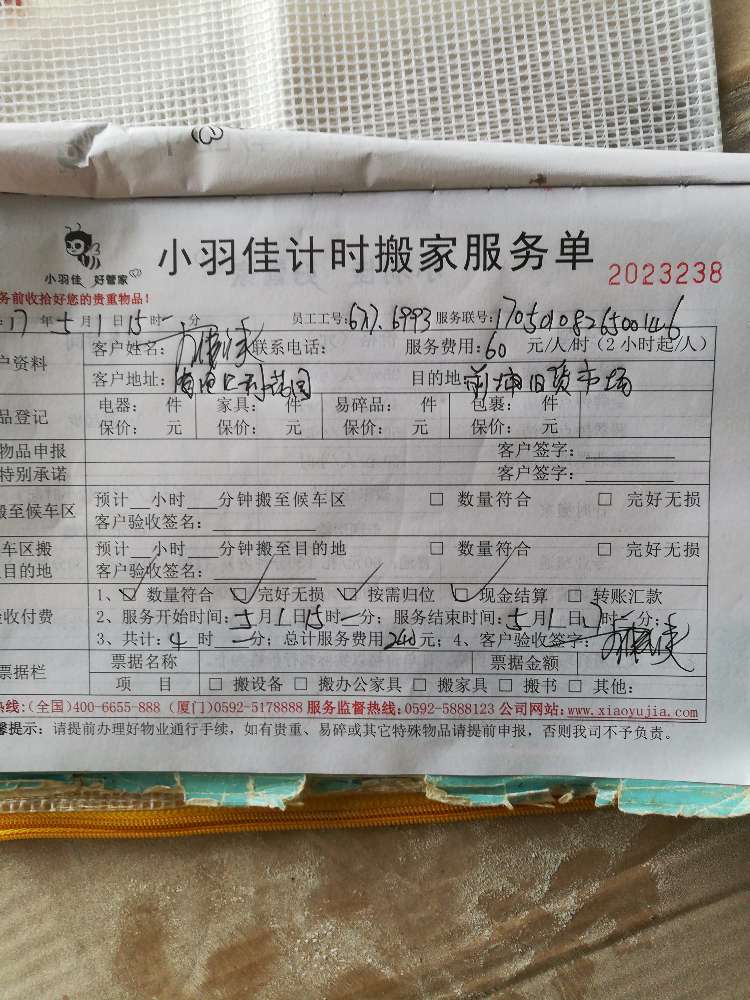 小羽佳 好管家
小羽佳计时搬家服务单
2023238
务前收拾好您的贵重物品！
17年5月1日15时一分 员工工号：677.6993 服务联号：17050108265001446
户资料 客户姓名： 联系电话： 服务费用：60 元/人/时（2小时起/人）
客户地址： 目的地：前埔旧货市场
品登记 电器： 件 家具： 件 易碎品： 件 包裹： 件
保价： 元 保价： 元 保价： 元 保价： 元
物品申报 客户签字：
特别承诺 客户签字：
搬至候车区 预计 小时 分钟搬至候车区 □ 数量符合 □ 完好无损
客户验收签名：
车区搬 预计 小时 分钟搬至目的地 □ 数量符合 □ 完好无损
目的地 客户验收签名：
1、☑ 数量符合 ☑ 完好无损 ☑ 按需归位 ☑ 现金结算 □ 转账汇款
收付费 2、服务开始时间：5月1日15时一分；服务结束时间：5月1日17时一分；
3、共计：4时一分；总计服务费用240元；4、客户验收签字：
票据栏 票据名称 票据金额
项 目 □ 搬设备 □ 搬办公家具 □ 搬家具 □ 搬书 □ 其他：
热线：(全国)400-6655-888 (厦门)0592-5178888 服务监督热线：0592-5888123 公司网站：www.xiaoyujia.com
馨提示：请提前办理好物业通行手续，如有贵重、易碎或其它特殊物品请提前申报，否则我司不予负责。